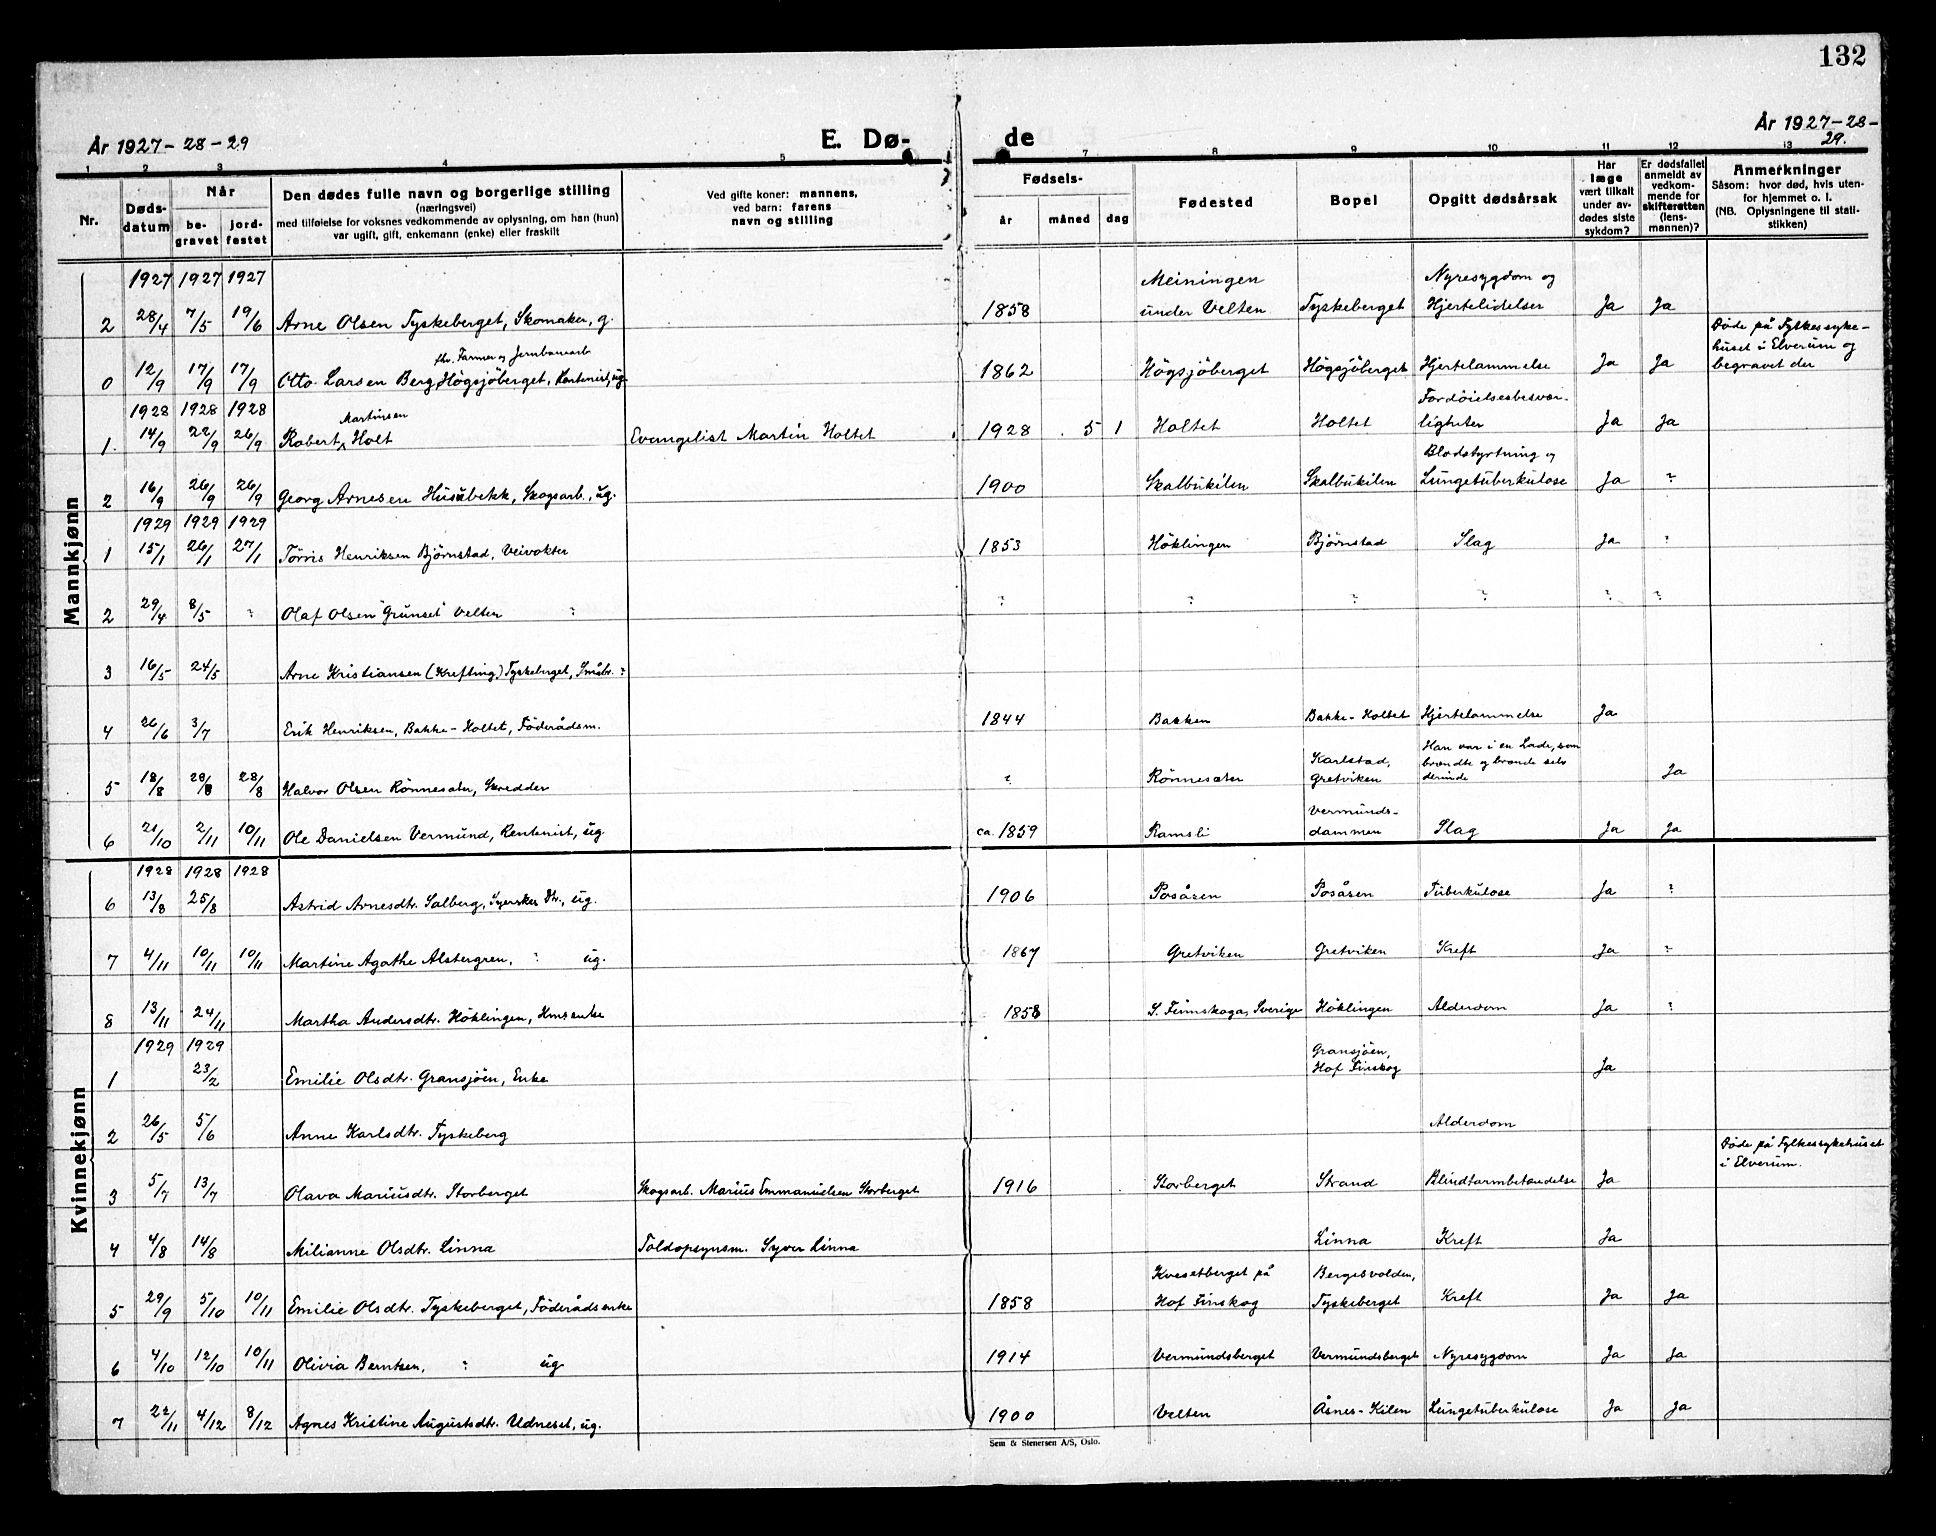 132
År 1927-28-29
E. Dø-
de
År 1927-28-
29.
1 2 3 4 5 7 8 9 10 11 12 13
Nr.
Døds-
datum
Når
be-
gravet
jord-
festet
Den dødes fulle navn og borgerlige stilling
(næringsvei)
med tilføielse for voksnes vedkommende av oplysning, om han (hun)
var ugift, gift, enkemann (enke) eller fraskilt
Ved gifte koner: mannens,
ved barn: farens
navn og stilling
Fødsels-
år måned dag
Fødested
Bopel
Opgitt dødsårsak
Har
læge
vært tilkalt
under av-
dødes siste
sykdom?
Er dødsfallet
anmeldt av
vedkom-
mende for
skifteretten
(lens-
mannen)?
Anmerkninger
Såsom: hvor død, hvis uten-
for hjemmet o. l.
(NB. Oplysningene til stati-
stikken)
Mannkjønn
1927 1927 1927 Meiningen Nyresygdom og
2 28/4 7/5 19/6 Arne Olsen Tyskeberget, Skomaker, g. 1858 under Velten Tyskeberget Hjertelidelser Ja Ja
Døde på Fylkessyke-
huset i Elverum og
begravet der
fhv. Farmer og Jernbanearb
0 12/9 17/9 17/9 Otto Larsen Berg, Högsjöberget, Rentenist, ug. 1862 Högsjöberget Högsjöberget Hjertelammelse Ja Ja
1928 1928 1928 Martinsen Fordöielsesbesvær-
1. 14/9 22/9 26/9 Robert Holt Evangelist Martin Holtet 1928 5 1 Holtet Holtet ligheter Ja Ja
Blodstyrtning og
2 16/9 26/9 26/9 Georg Arnesen Husubekk, Skogsarb., ug. 1900 Skalbukilen Skalbukilen Lungetuberkulose Ja ?
1929 1929 1929
1 15/1 26/1 27/1 Törris Henriksen Björnstad, Veivokter 1853 Höklingen Björnstad Slag Ja ?
2 29/4 8/5 ? Olaf Olsen "Grunset" Velten ? ? ? ? ? ? ?
3 16/5 24/5 Arne Kristiansen (Krefting) Tyskeberget, Småbr. ?
4 26/6 3/7 Erik Henriksen, Bakke-Holtet, Föderådsm. 1844 Bakken Bakke-Holtet Hjertelammelse Ja
5 18/8 28/8 28/8 Halvor Olsen Rönnesæter, Skredder ? Rönnesæter Karlstad,
Gretviken
Han var i en Lade, som
brændte og brænde selv
derinde
Ja
6 21/10 2/11 10/11 Ole Danielsen Vermund, Rentenist, ug. ca. 1859 Ramsli Vermunds-
dammen Slag Ja Ja
Kvinnekjønn
1928 1928 1928
6 13/8 25/8 Astrid Arnesdtr. Solberg, Syerske, ug. 1906 Posåsen Posåsen Tuberkulose Ja ?
7 4/11 10/11 10/11 Martine Agathe Alstergren, ? ug. 1867 Gretviken Gretviken Kreft Ja ?
8 13/11 24/11 Martha Andersdtr. Höklingen, Hmsenke 1858 S. Finnskoga, Sverige Höklingen Alderdom Ja ?
1929 1929
1 23/2 Emilie Olsdtr. Gransjöen, Enke Gransjöen,
Hof Finskog Ja
2 26/5 5/6 Anne Karlsdtr. Tyskeberg Alderdom
Døde på Fylkessykehuset
i Elverum.
3 5/7 13/7 Olava Mariusdtr. Storberget Skogsarb. Marius Emmanuelsen Storberget 1916 Storberget Strand Blindtarmbetændelse Ja
4 4/8 14/8 Milianne Olsdtr. Linna Toldopsynsm. Syver Linna Linna Kreft Ja
5 29/9 5/10 10/11 Emilie Olsdtr. Tyskeberget, Föderådsenke 1858 Kvesetberget på
Hof Finskog Bergesvolden,
Tyskeberget Kreft Ja Ja
6 4/10 12/10 10/11 Olivia Berntsen, ? ug. 1914 Vermundsberget Vermundsberget Nyresygdom Ja Ja
7 22/11 4/12 8/12 Agnes Kristine Augustsdtr. Udneset, ug. 1900 Velten Åsnes-Kilen Lungetuberkulose Ja Ja
Sem & Stenersen A/S, Oslo.